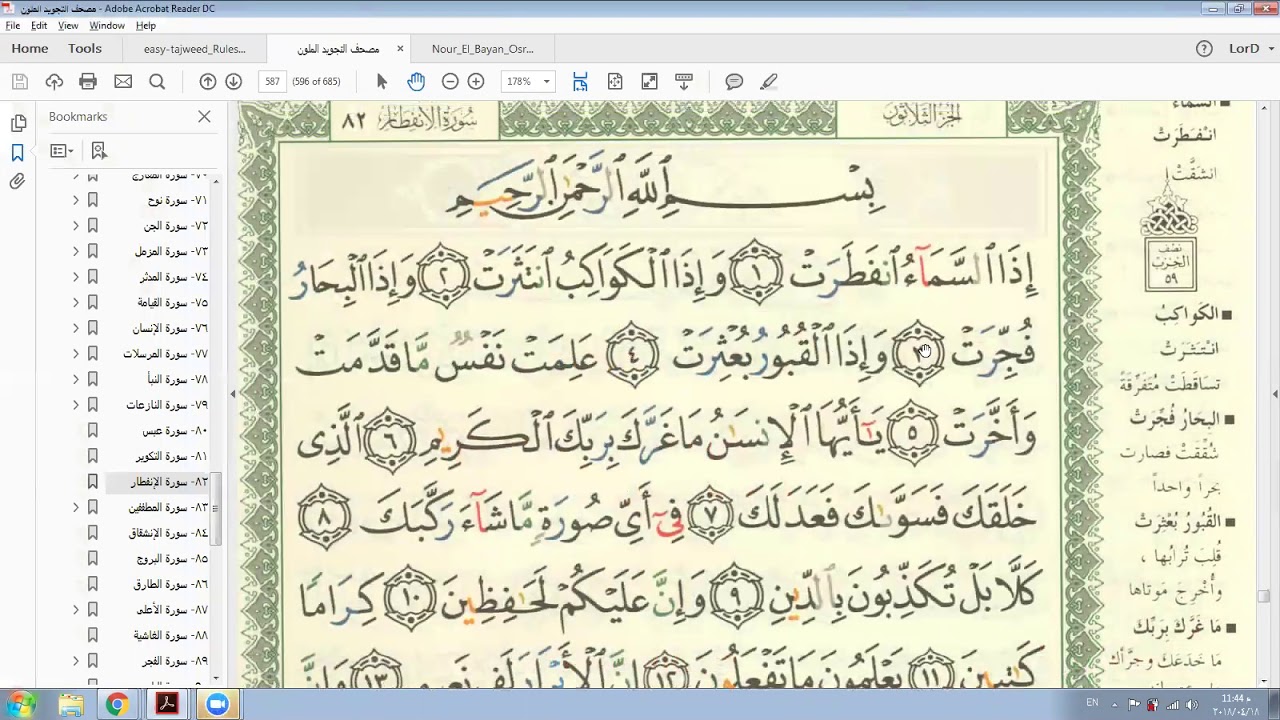 مصحف التجويد الملون - Adobe Acrobat Reader DC
File Edit View Window Help
Home Tools easy-tajweed_Rules... مصحف التجويد الملون × Nour_El_Bayan_Osr... LorD
587 (596 of 685) 178%
Bookmarks
٧٠- سورة المعارج
٧١- سورة نوح
٧٢- سورة الجن
٧٣- سورة المزمل
٧٤- سورة المدثر
٧٥- سورة القيامة
٧٦- سورة الإنسان
٧٧- سورة المرسلات
٧٨- سورة النبأ
٧٩- سورة النازعات
٨٠- سورة عبس
٨١- سورة التكوير
٨٢- سورة الإنفطار
٨٣- سورة المطففين
٨٤- سورة الإنشقاق
٨٥- سورة البروج
٨٦- سورة الطارق
٨٧- سورة الأعلى
٨٨- سورة الغاشية
٨٩- سورة الفجر
الجزء الثلاثون
سورة الانفطار ٨٢
بِسْمِ ٱللَّهِ ٱلرَّحْمَٰنِ ٱلرَّحِيمِ
إِذَا ٱلسَّمَآءُ ٱنفَطَرَتْ ١ وَإِذَا ٱلْكَوَاكِبُ ٱنتَثَرَتْ ٢ وَإِذَا ٱلْبِحَارُ
فُجِّرَتْ ٣ وَإِذَا ٱلْقُبُورُ بُعْثِرَتْ ٤ عَلِمَتْ نَفْسٌ مَّا قَدَّمَتْ
وَأَخَّرَتْ ٥ يَٰٓأَيُّهَا ٱلْإِنسَٰنُ مَا غَرَّكَ بِرَبِّكَ ٱلْكَرِيمِ ٦ ٱلَّذِى
خَلَقَكَ فَسَوَّىٰكَ فَعَدَلَكَ ٧ فِىٓ أَىِّ صُورَةٍ مَّا شَآءَ رَكَّبَكَ ٨
كَلَّا بَلْ تُكَذِّبُونَ بِٱلدِّينِ ٩ وَإِنَّ عَلَيْكُمْ لَحَٰفِظِينَ ١٠ كِرَامًا
كَٰتِبِينَ ١١ يَعْلَمُونَ مَا تَفْعَلُونَ ١٢ إِنَّ ٱلْأَبْرَارَ لَفِى نَعِيمٍ ١٣ وَإِنَّ
■ السماء
انْفَطَرَتْ
انشَقَّتْ
نصف
الحزب
٥٩
■ الكَواكِبُ
انْتَثَرَتْ
تساقَطَتْ مُتَفَرِّقَةً
■ البِحَارُ فُجِّرَتْ
شُقِّقَتْ فصارت
بحراً واحداً
■ القُبُورُ بُعْثِرَتْ
قُلِبَ تُرابُها ،
وأُخْرِجَ مَوتاها
■ مَا غَرَّكَ بِرَبِّكَ
مَا خَدَعَكَ وجَرَّأكَ
EN 11:44 م
٢٠١٨/٠٤/١٨